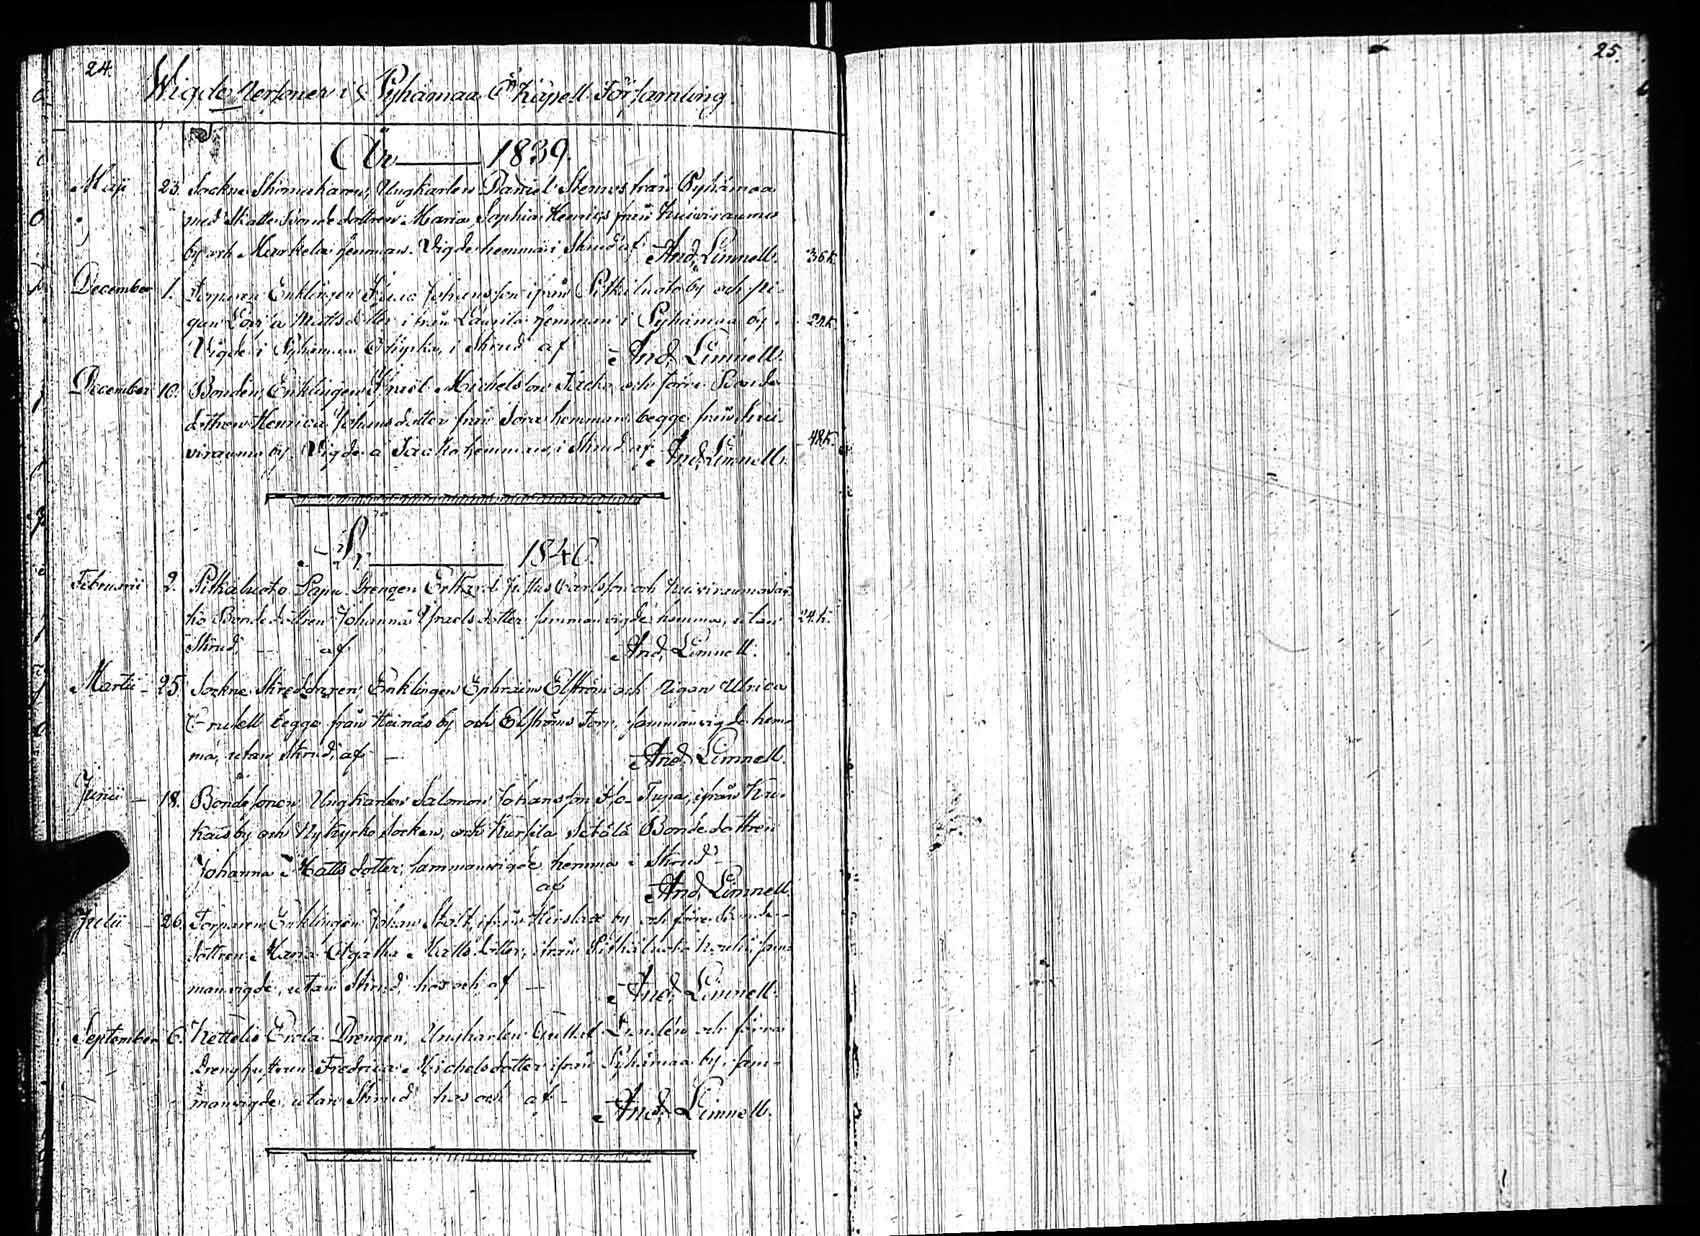 24.
Wigde Personer i Pyhämaa Kapell Församling.
År 1839.
Maji 23. Sockne Skomakaren, Ungkarlen Daniel Stenros från Pyhämaa
med Skatte Bonde dottren Maria Sophia Henrics från Kuiviraumo
by och Markela hemman. Vigde hemma i Skrud af And. Limnell. 36 k.
December 1. Torparen Enklingen Johansson ifrån Pitkäluoto by och pi-
gan Lovisa Mattsdotter ifrån Laurila hemman i Pyhämaa by. 24 k.
Vigde i Pyhämaa Kyrka, i Skrud af And. Limnell.
December 10. Bonden, Enklingen Israel Michelsson Jacko och förre Bonde
dottren Henrica Johansdotter från Sorra hemman, begge från Kui-
viraumo by. Vigde å Jacko hemman, i Skrud af And. Limnell. 48 k.
År 1840.
Februarii 2. Pitkäluoto Papu Drengen Justus Carlsson och Kuiviraumo Jac-
ko Bonde dottren Johanna Israels dotter sammanvigde hemma, utan 24 k.
Skrud, af And. Limnell.
Martii 25. Sockne Skreddaren, Enklingen Ephraim Elfström och Pigan Ulrica
Grudell begge från Heinäs by och Elfströms Torp, sammanvigde hem-
ma, utan Skrud, af And. Limnell.
Junii 18. Bondesonen Ungkarlen Salomon Johansson Iso Tupa, ifrån Ku-
kais by och Nykyrko Socken, och Kursila Setälä Bonde dottren
Johanna Mattsdotter, sammanvigde hemma i Skrud
af And. Limnell.
Julii 26. Torparen, Enklingen Johan Stolt ifrån by och förre Bonde-
dottren Maria Agatha Mattsdotter, ifrån Pitkäluoto sam-
manvigde, utan Skrud, hos och af And. Limnell.
September 6. Kettelis Erola Drengen, Ungkarlen Gustaf Lundén och förra
Drenghustrun Fredrica Michelsdotter ifrån Pyhämaa by, sam-
manvigde utan Skrud hos och af And. Limnell.
25.